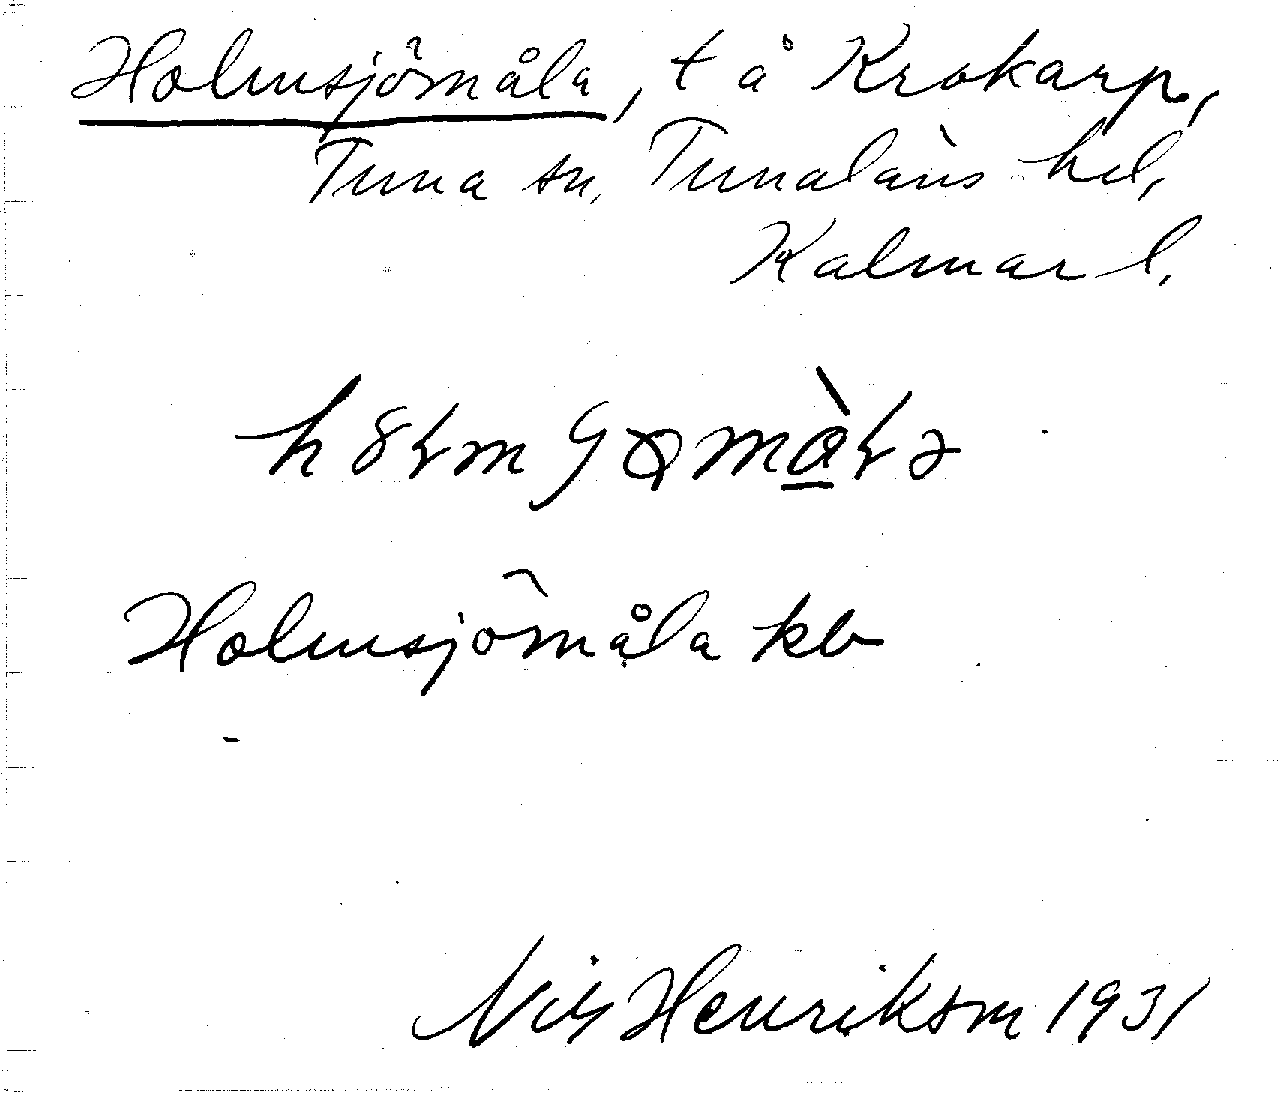 Holmsjömåla, t å Krokarp,
Tuna sn, Tunaläns hd,
Kalmar l.
Holmsjömåla kb
Nils Henrikson 1931